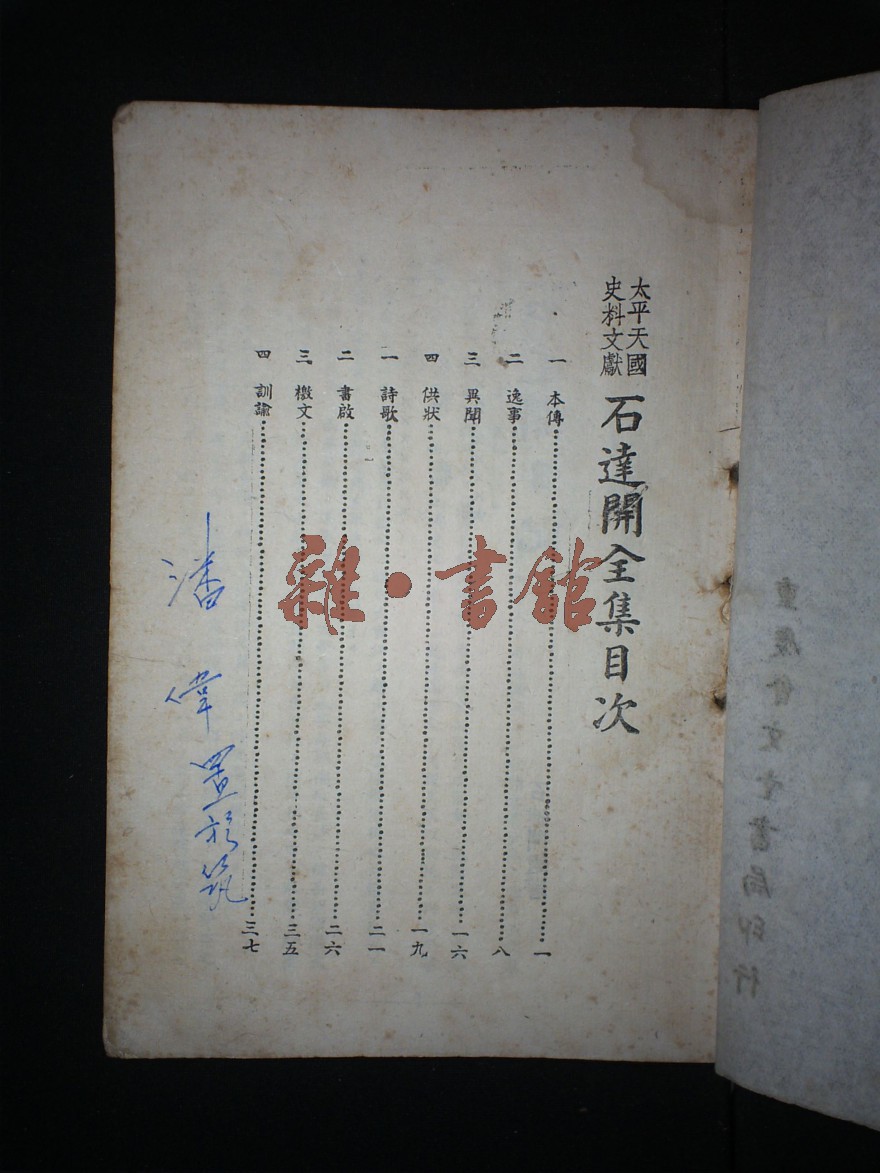 太平天國
史料文獻
石達開全集目次
一 本傳 一
二 逸事 八
三 異聞 一六
四 供狀 一九
一 詩歌 二一
二 書啟 二六
三 檄文 三五
四 訓諭 三七
潘偉置於筑
雜·書館
重慶會文堂書局印行